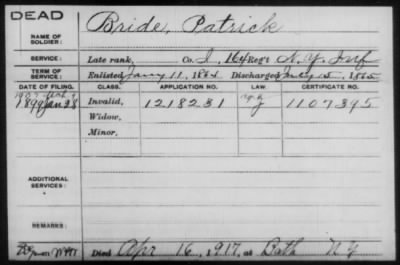 DEAD
NAME OF SOLDIER: Bride, Patrick
SERVICE: Late rank, Co. I, 164 Reg't N.Y. Inf
TERM OF SERVICE: Enlisted Jany 11, 1864 Discharged July 15, 1865
DATE OF FILING. CLASS. APPLICATION NO. LAW. CERTIFICATE NO.
1899 Jan 28 Invalid, 1218231 1107395
Widow,
Minor,
ADDITIONAL SERVICES:
REMARKS:
Died Apr 16, 1917, at Bath NY